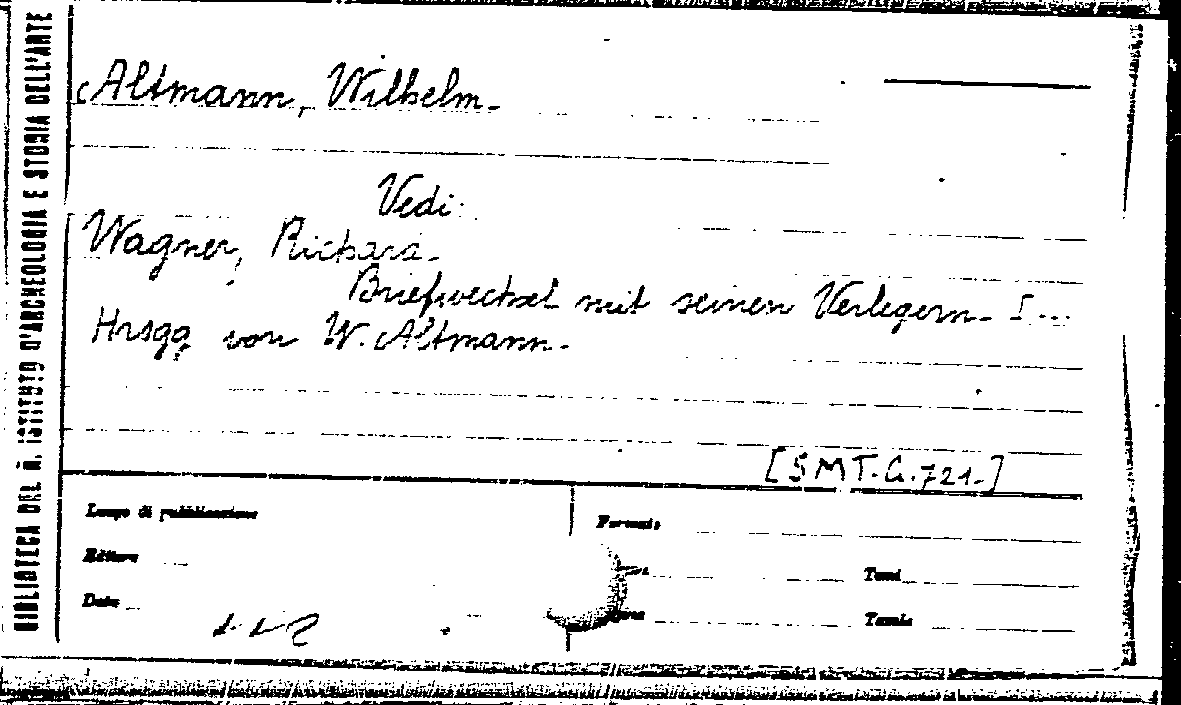 BIBLIOTECA DEL R. ISTITUTO D'ARCHEOLOGIA E STORIA DELL'ARTE
Altmann, Wilhelm.
Vedi:
Wagner, Richard.
Briefwechsel mit seinen Verlegern. I...
Hrsgg von W. Altmann.
[SMT.G.721.]
Luogo di pubblicazione
Formato
Editore
Tomi
Data
Tavole